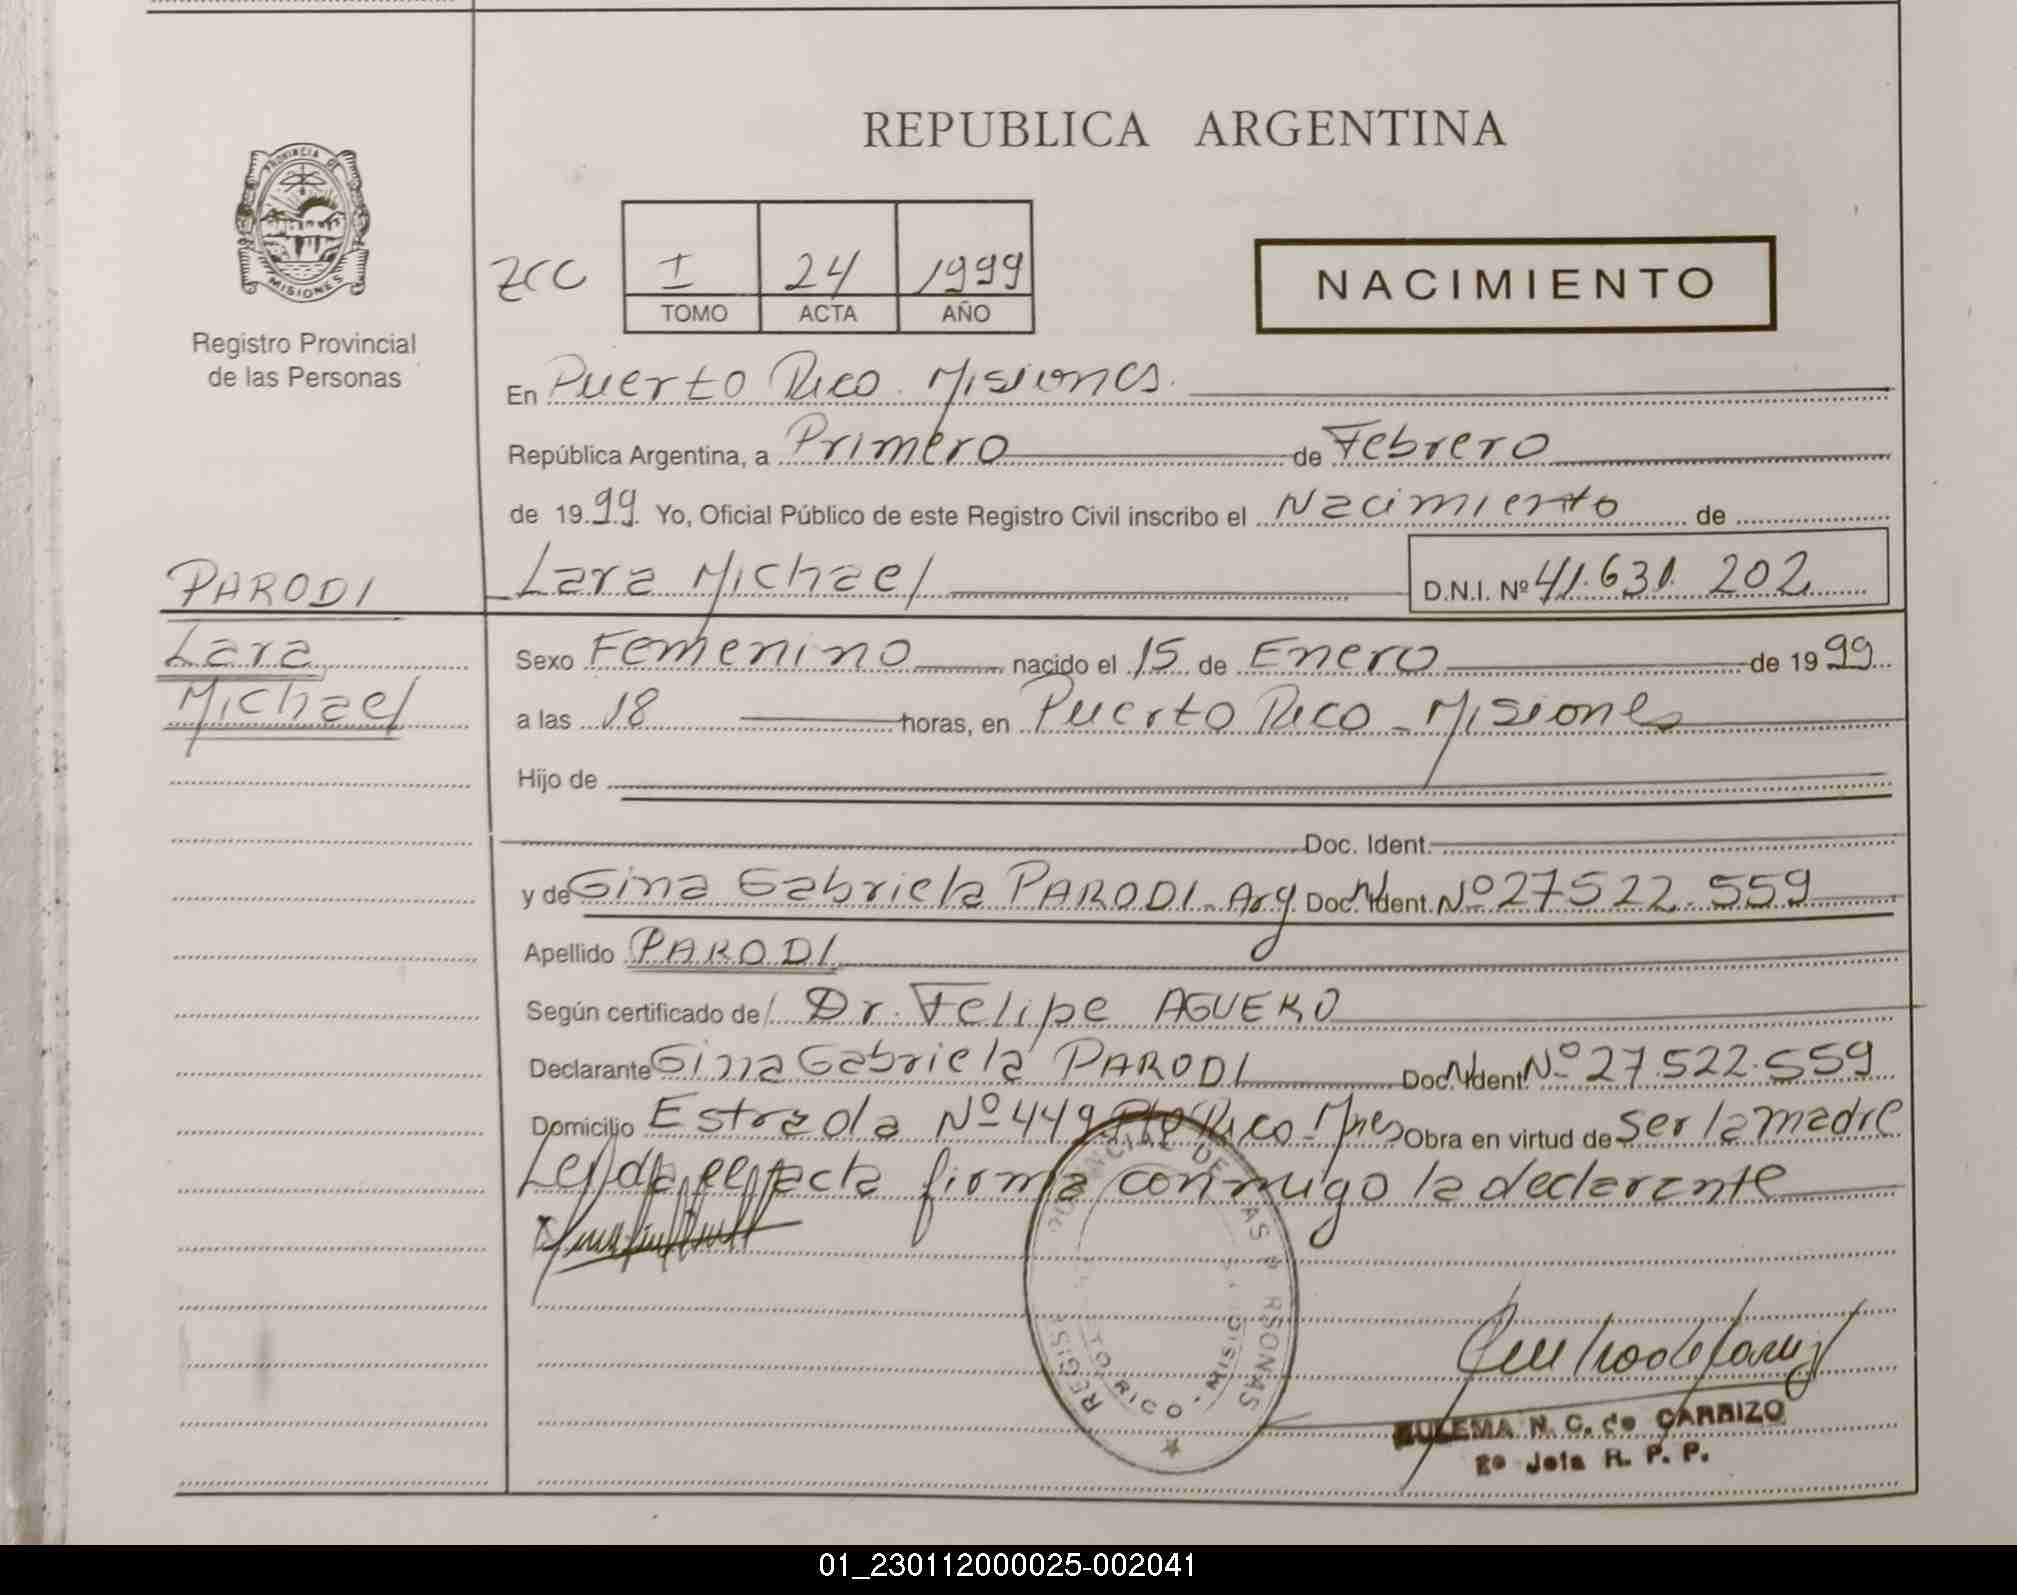 PROVINCIA DE
MISIONES
Registro Provincial
de las Personas
REPUBLICA ARGENTINA
ZCC I 24 1999
TOMO ACTA AÑO
NACIMIENTO
En Puerto Rico. Misiones.
República Argentina, a Primero de Febrero
de 1999. Yo, Oficial Público de este Registro Civil inscribo el Nacimiento de
Lara Michael D.N.I. Nº 41.631.202
PARODI
Lara
Michael
Sexo Femenino nacido el 15 de Enero de 1999
a las 18 horas, en Puerto Rico - Misiones
Hijo de
Doc. Ident.
y de Gina Gabriela PARODI - Arg. Doc. Ident. Nº 27522.559
Apellido PARODI
Según certificado de/ Dr. Felipe AGUERO
Declarante Gina Gabriela PARODI Doc. Ident. Nº 27.522.559
Domicilio Estrada Nº 449 Pto Rico - Mnes Obra en virtud de ser la madre
Leída el acta firma conmigo la declarante
REGIS PROVINCIAL DE LAS P RSONAS
TO RICO - MISIO
ZULEMA N. C. de CARRIZO
2º Jefa R. P. P.
01_230112000025-002041